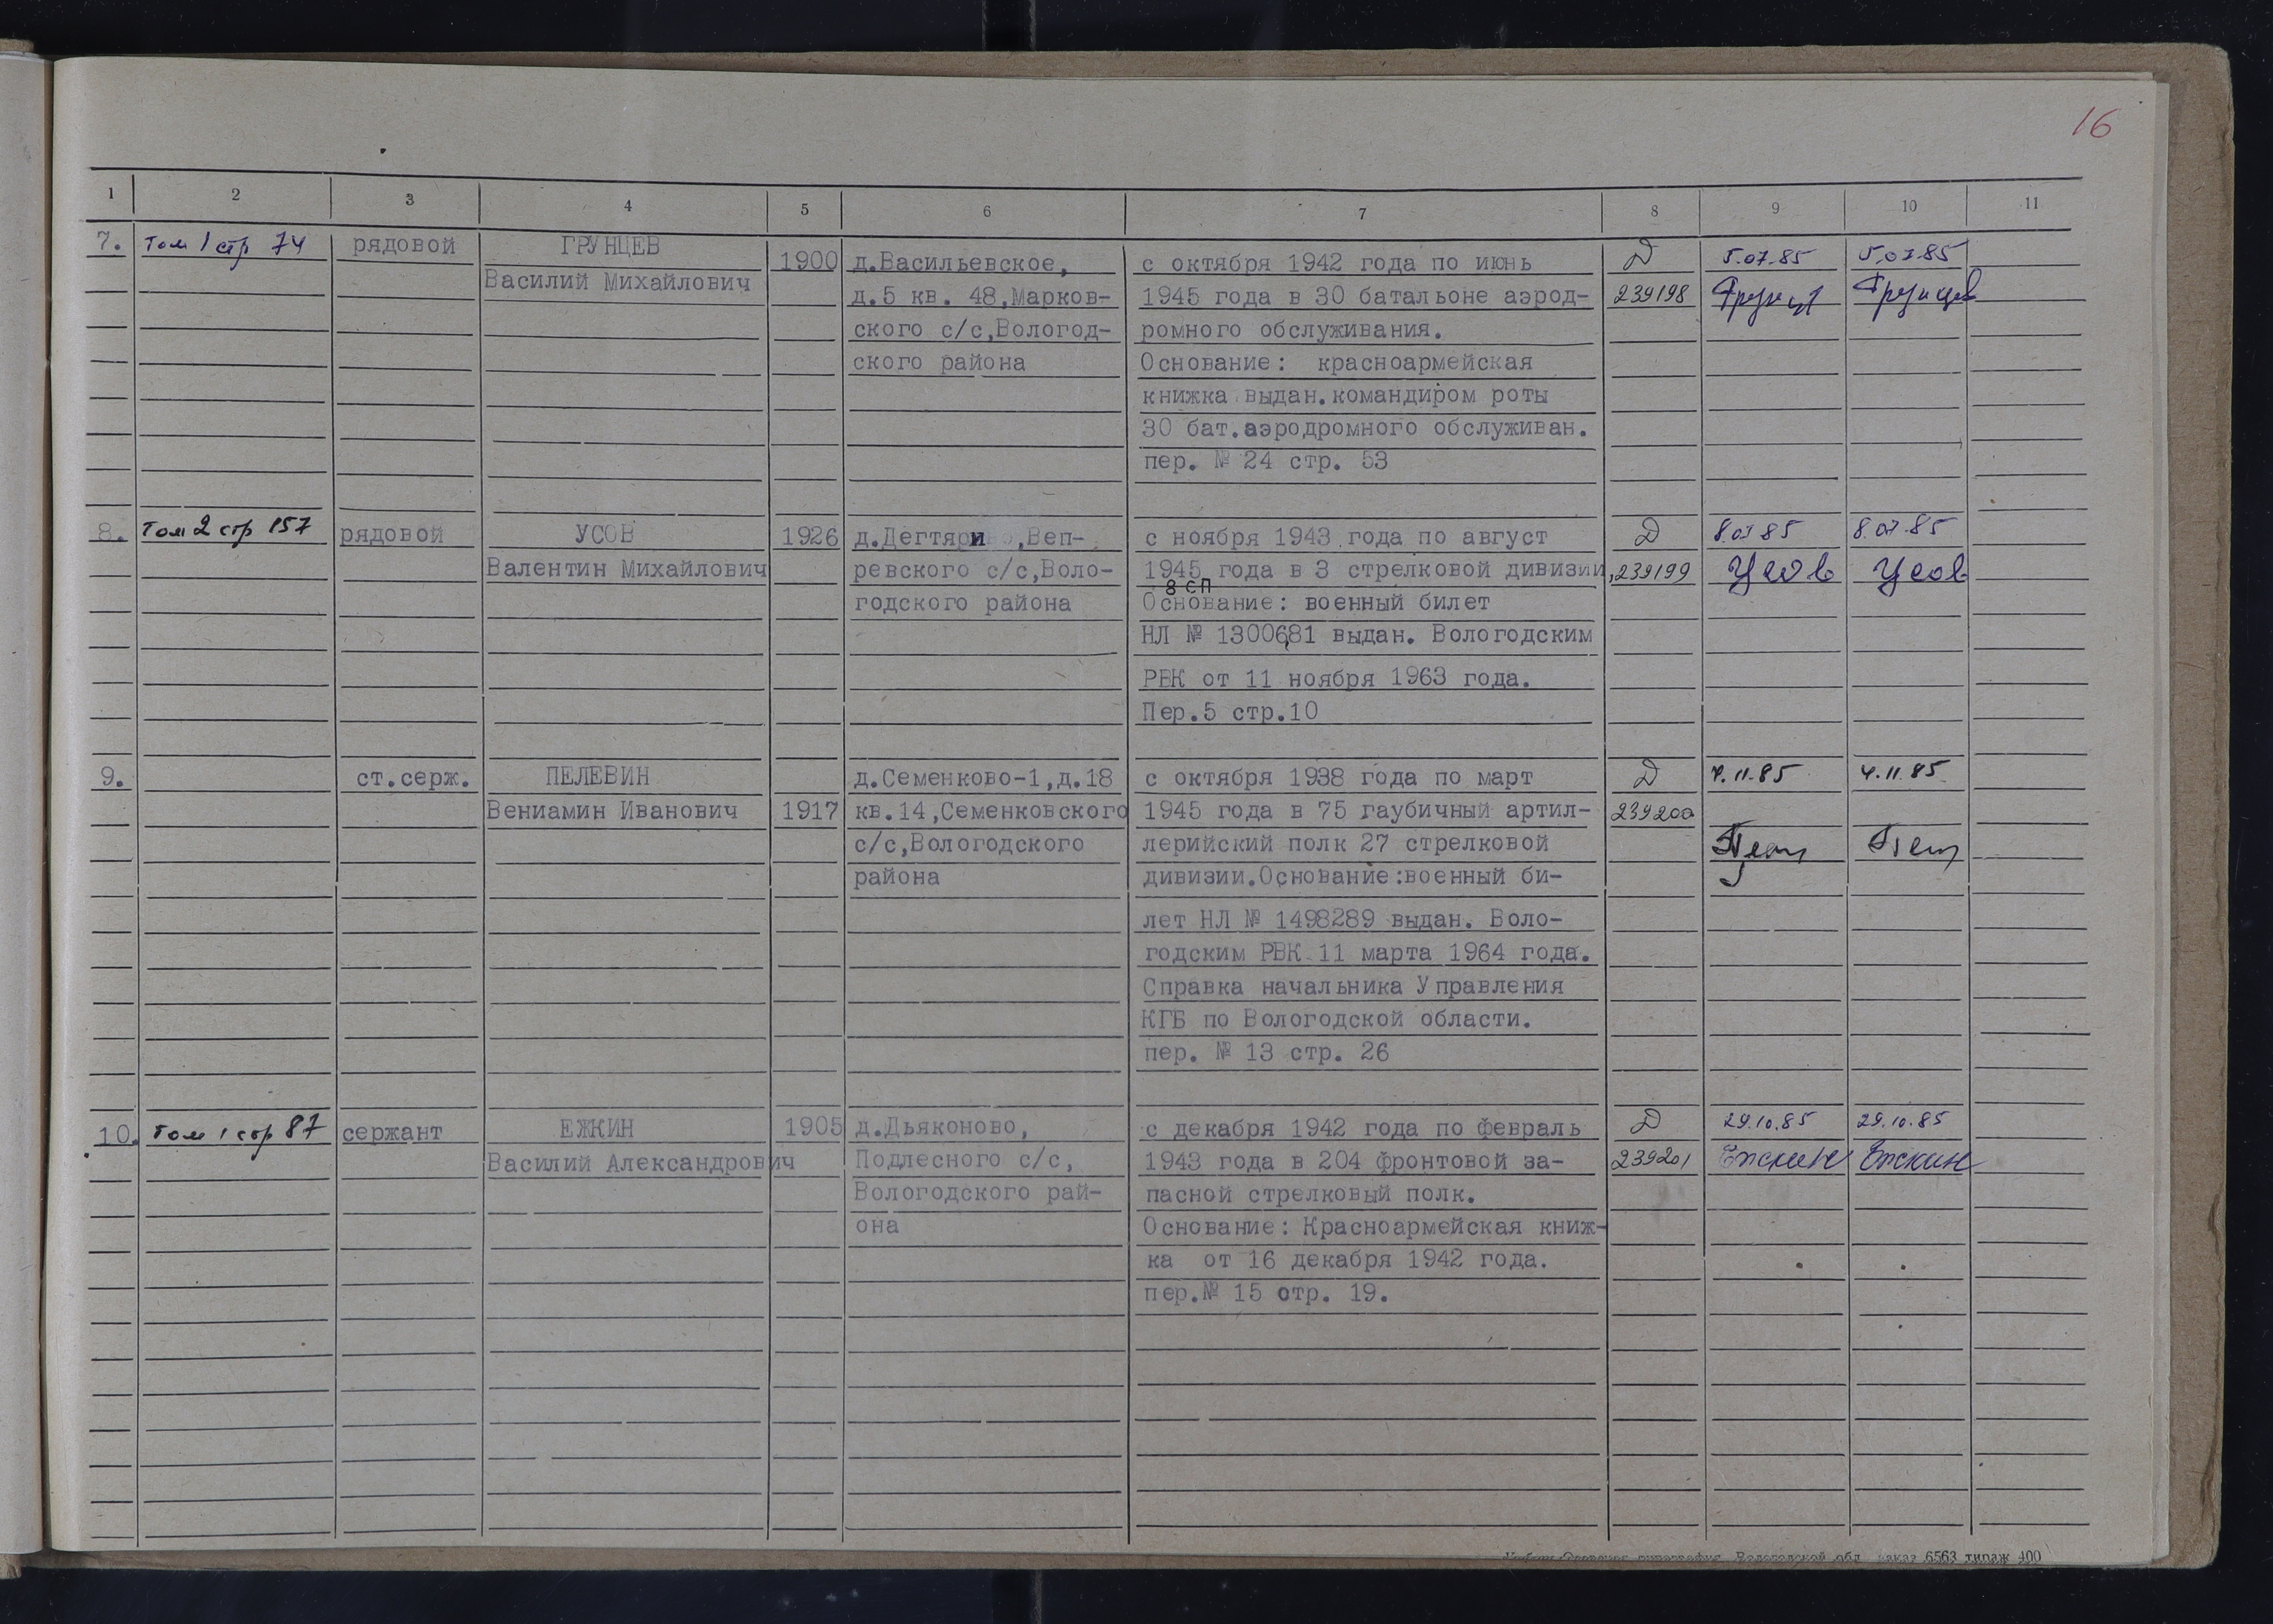 16
1 2 3 4 5 6 7 8 9 10 11
7. Том 1 стр 74 рядовой ГРУНЦЕВ
Василий Михайлович
1900
д.Васильевское,
д.5 кв. 48,Марков-
ского с/с,Вологод-
ского района
с октября 1942 года по июнь
1945 года в 30 батальоне аэрод-
ромного обслуживания.
Основание: красноармейская
книжка выдан.командиром роты
30 бат.аэродромного обслуживан.
пер. № 24 стр. 53
Д
239198
5.07.85
5.07.85
Грунцев
8. Том 2 стр 157 рядовой УСОВ
Валентин Михайлович
1926
д.Дегтяри ,Веп-
ревского с/с,Воло-
годского района
с ноября 1943 года по август
1945 года в 3 стрелковой дивизии,
8 СП
Основание: военный билет
НЛ № 1300681 выдан. Вологодским
РВК от 11 ноября 1963 года.
Пер.5 стр.10
Д
239199
8.07.85
Усов
8.07.85
Усов
9. ст.серж. ПЕЛЕВИН
Вениамин Иванович
1917
д.Семенково-1,д.18
кв.14,Семенковского
с/с,Вологодского
района
с октября 1938 года по март
1945 года в 75 гаубичный артил-
лерийский полк 27 стрелковой
дивизии.Основание:военный би-
лет НЛ № 1498289 выдан. Воло-
годским РВК 11 марта 1964 года.
Справка начальника Управления
КГБ по Вологодской области.
пер. № 13 стр. 26
Д
239200
4.11.85
4.11.85
10. Том 1 стр 87 сержант ЕЖКИН
Василий Александрович
1905
д.Дьяконово,
Подлесного с/с,
Вологодского рай-
она
с декабря 1942 года по февраль
1943 года в 204 фронтовой за-
пасной стрелковый полк.
Основание: Красноармейская книж-
ка от 16 декабря 1942 года.
пер.№ 15 стр. 19.
Д
239201
29.10.85
Ежкин
29.10.85
Ежкин
типография Вологодской обл. заказ 6563 тираж 400